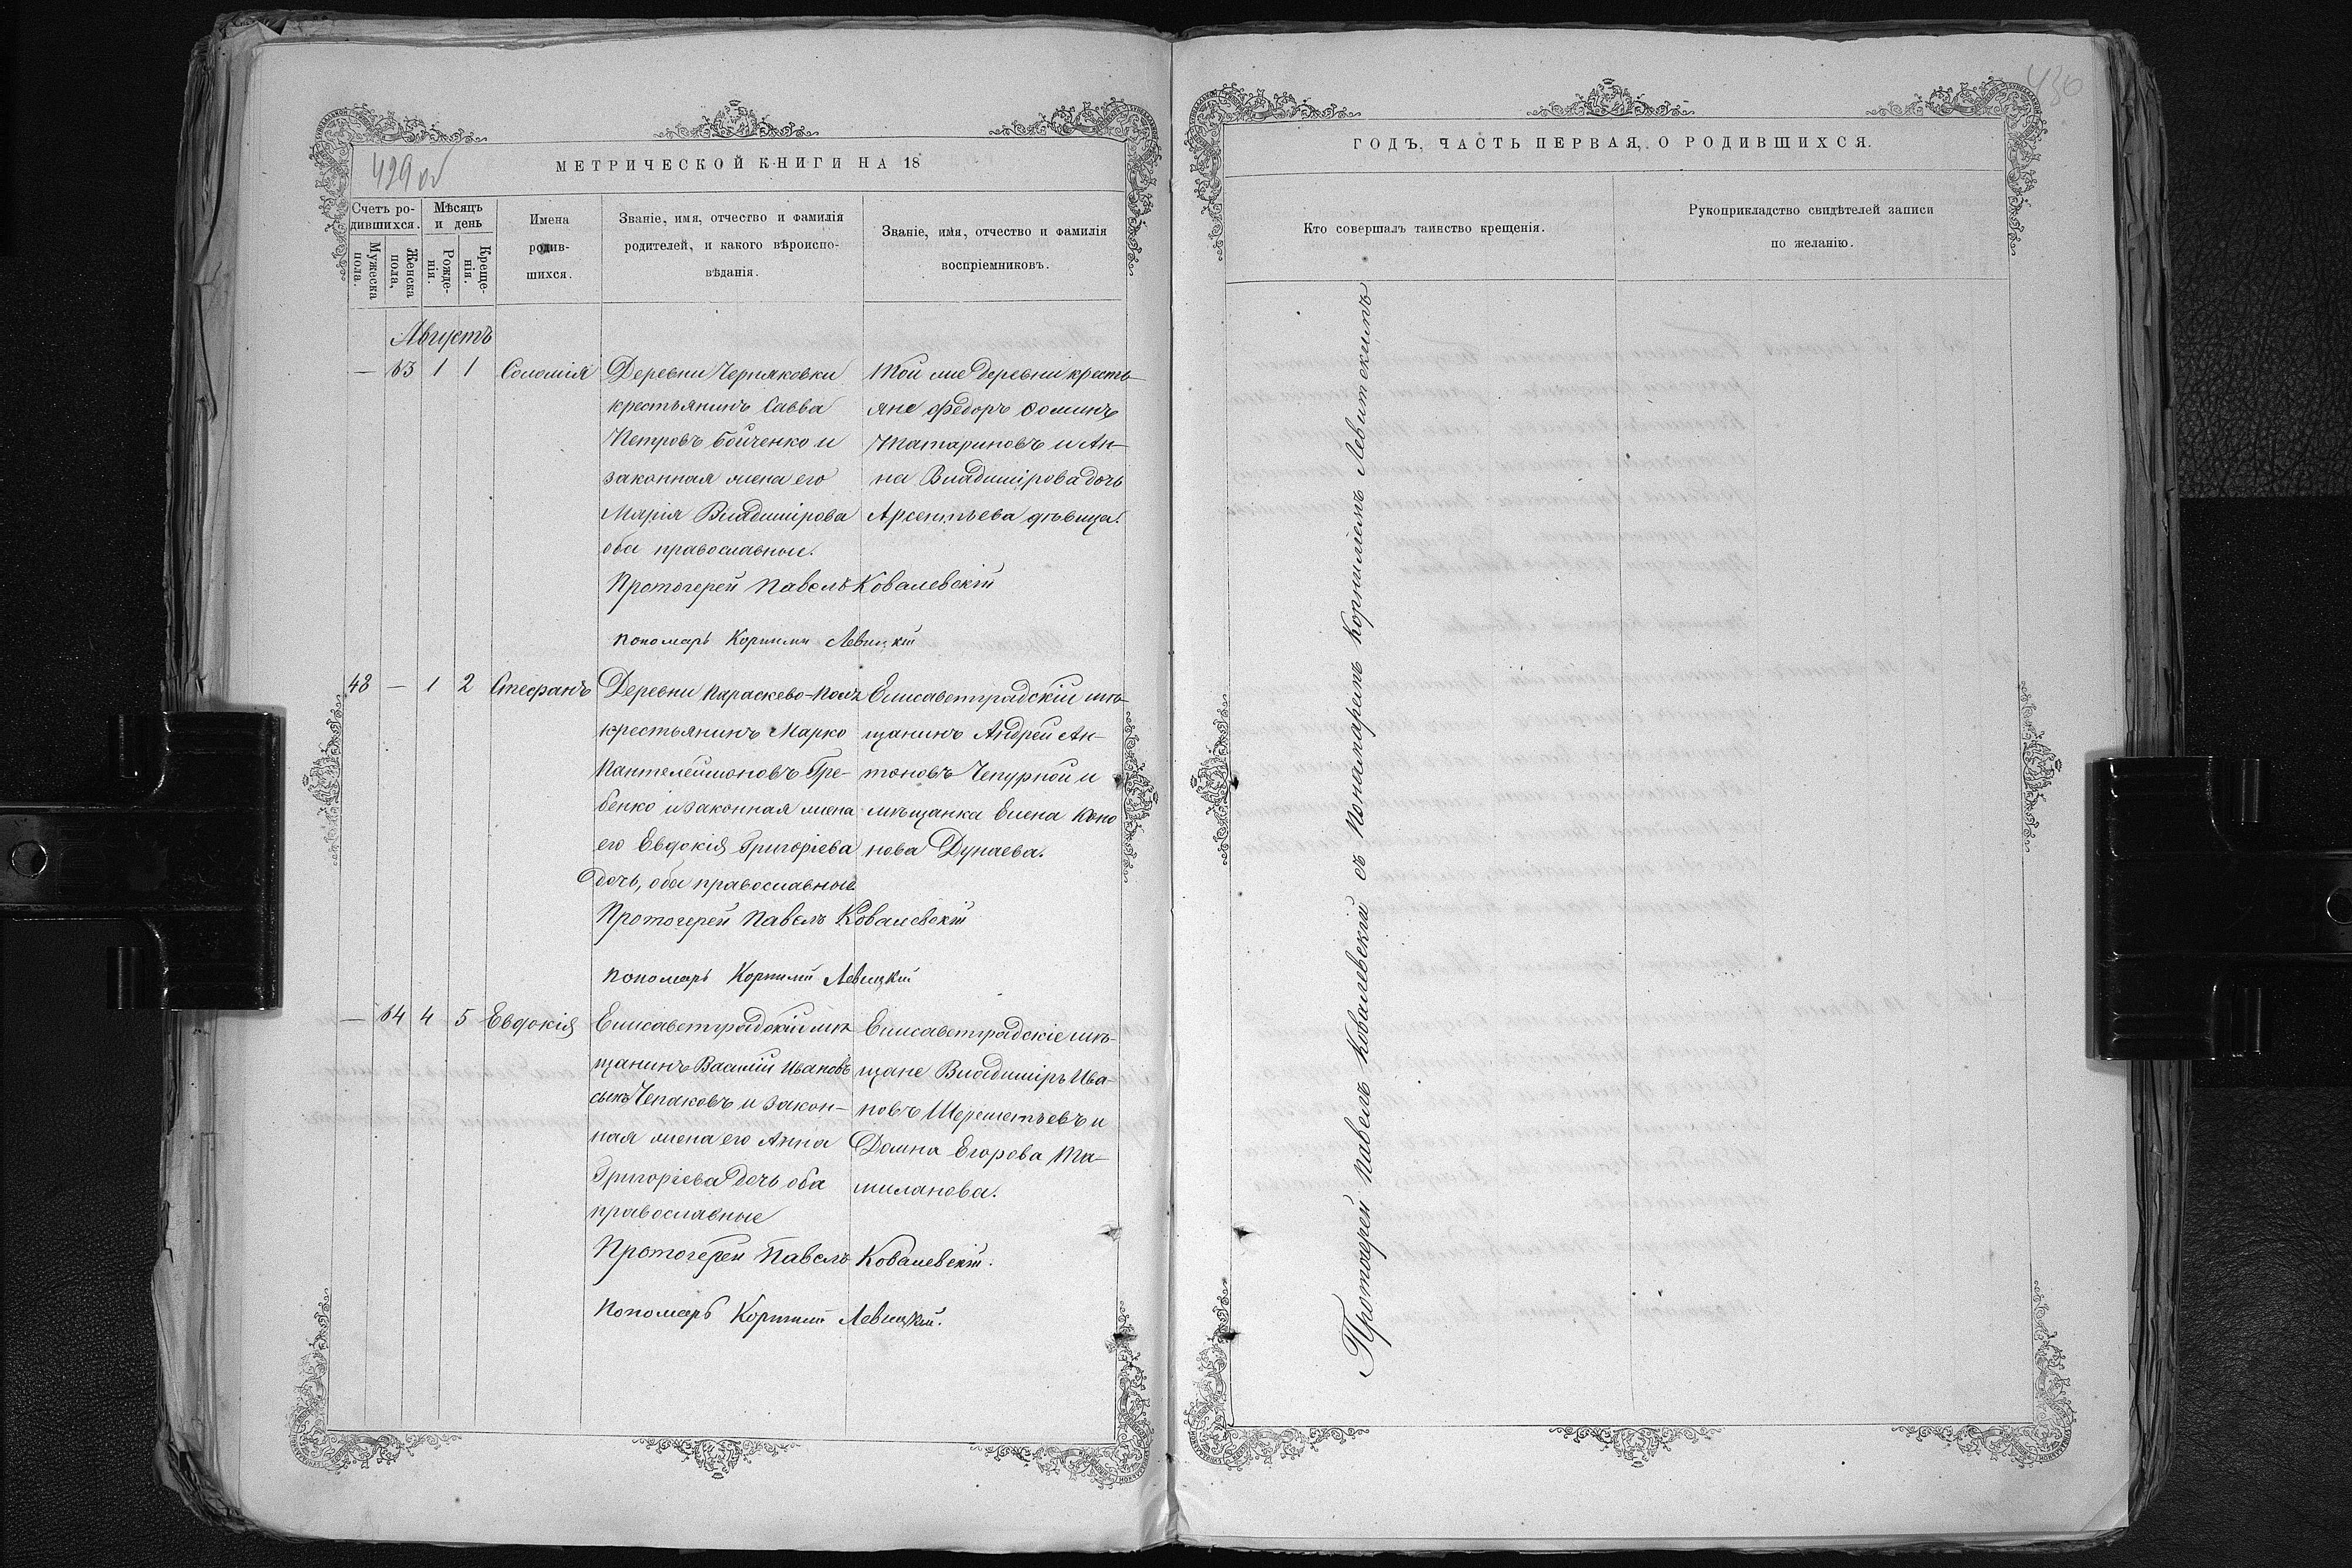 429 об
МЕТРИЧЕСКОЙ КНИГИ НА 18
Счетъ родившихся.
Мѣсяцъ и день
Мужеска пола.
Женска пола.
Рожденія.
Крещенія.
Имена родившихся.
Званіе, имя, отчество и фамилія
родителей, и какого вѣроиспо-
вѣданія.
Званіе, имя, отчество и фамилія
воспріемниковъ.
Августъ
— 63 1 1 Соломія
Деревни Черняковки
крестьянинъ Савва
Петровъ Бойченко и
законная жена его
Марія Владимірова
оба православные.
Той же деревни кресть-
яне Федоръ Фоминъ
Татариновъ и Ан-
на Владимірова дочь
Арсентьева дѣвица.
Протоіерей Павелъ Ковалевскій
Пономарь Корнилій Левицкій
48 — 1 2 Стефанъ
Деревни Параскево-Поля
крестьянинъ Марко
Пантелеймоновъ Гре-
бенко и законная жена
его Евдокія Григоріева
дочь, оба православные
Елисаветградскій мѣ-
щанинъ Андрей Ан-
тоновъ Чепурной и
мѣщанка Елена Коно
нова Дунаева.
Протоіерей Павелъ Ковалевскій
Пономарь Корнилій Левицкій
— 64 4 5 Евдокія
Елисаветградскій мѣ-
щанинъ Василій Ивановъ
сынъ Чепаковъ и закон-
ная жена его Анна
Григоріева дочь оба
православные
Елисаветградскіе мѣ-
щане Владиміръ Ива-
новъ Шереметьевъ и
Домна Егорова Та-
миланова.
Протоіерей Павелъ Ковалевскій.
Пономарь Корнилій Левицкій.
430
ГОДЪ, ЧАСТЬ ПЕРВАЯ, О РОДИВШИХСЯ.
Кто совершалъ таинство крещенія.
Рукоприкладство свидѣтелей записи
по желанію.
Протоіерей Павелъ Ковалевскій съ Пономаремъ Корниліемъ Левитскимъ